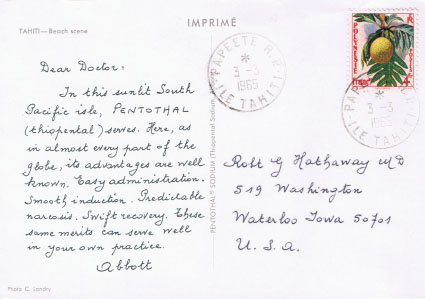 IMPRIMÉ
TAHITI—Beach scene
Dear Doctor:
In this sunlit South
Pacific isle, PENTOTHAL
(thiopental) serves. Here, as
in almost every part of the
globe, its advantages are well
known. Easy administration.
Smooth induction. Predictable
narcosis. Swift recovery. These
same merits can serve well
in your own practice.
Abbott
Photo C. Landry
PENTOTHAL® SODIUM (Thiopental Sodium
PAPEETE R.P.
3-3
1965
ILE TAHITI
POLYNESIE
PAPEETE R.P.
3-3
1965
ILE TAHITI
Robt G Hathaway MD
519 Washington
Waterloo Iowa 50701
U.S.A.